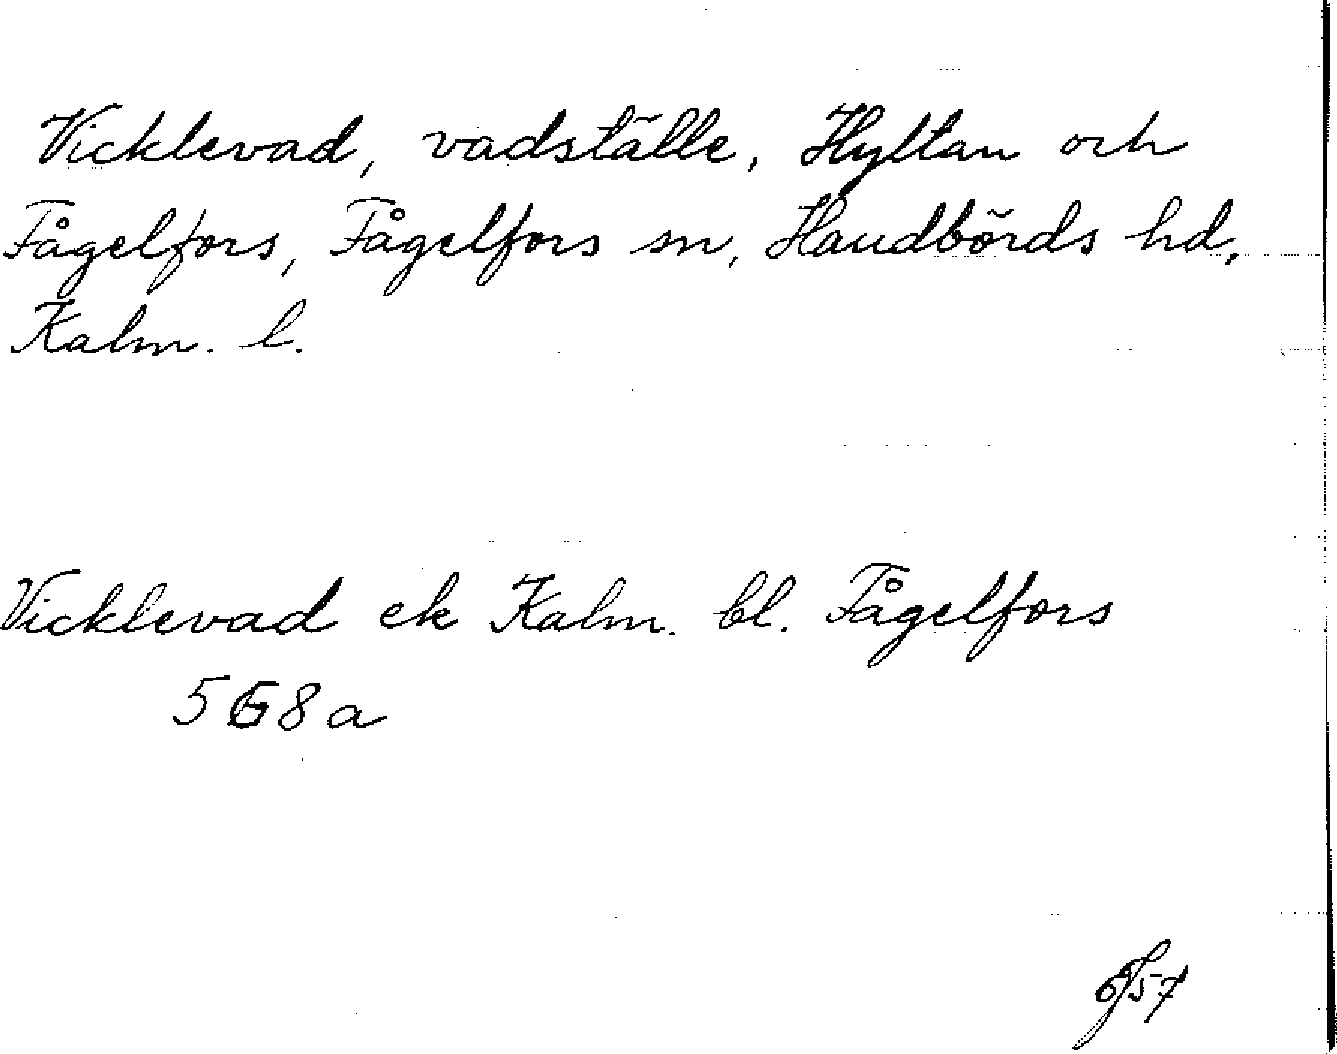 Vicklevad, vadställe, Hyltan och
Fågelfors, Fågelfors sn, Handbörds hd,
Kalm. l.
Vicklevad ek Kalm. bl. Fågelfors
568a